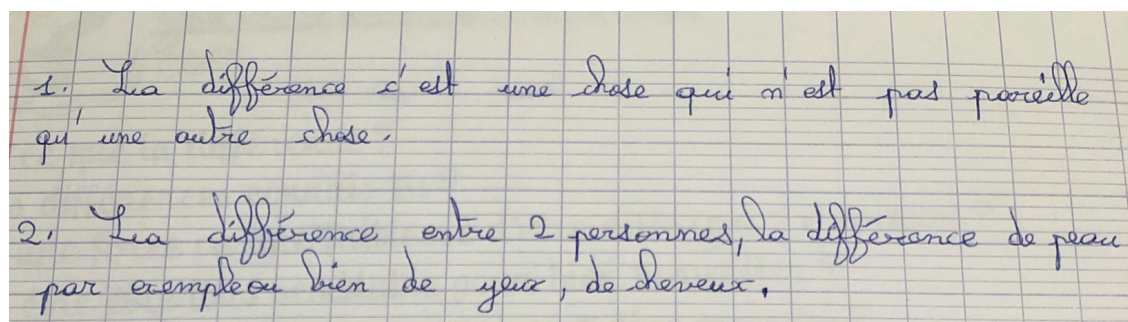 1. La différence c'est une chose qui n'est pas pareille
qu'une autre chose.
2. La différence entre 2 personnes, la différence de peau
par exemple ou bien de yeux, de cheveux.